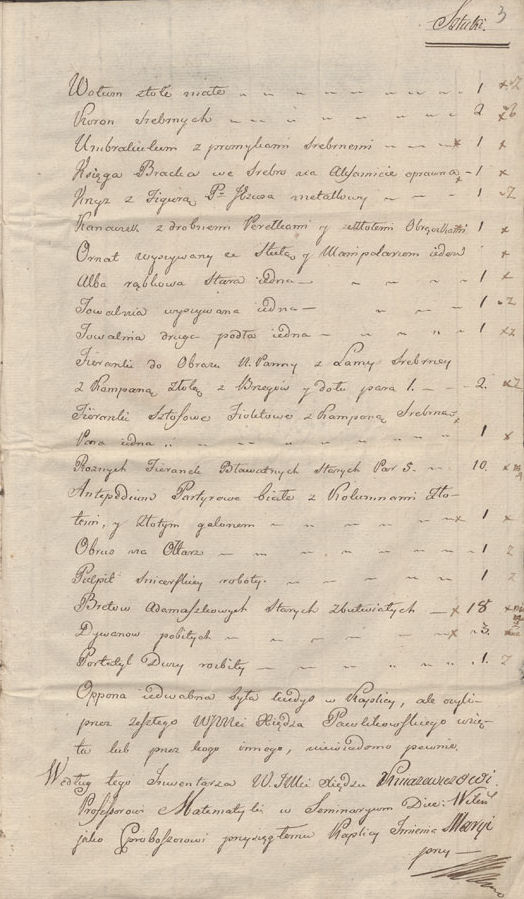 3
Sztuki.
Wotum złote małe " " " " " 1 x
Koron Srebrnych " " " " 2 x
Umbraculum z promykami Srebrnemi — x 1 x
Księga Bracka we Srebro na Axamicie oprawna — 1 x
Krzyż z Figurą Pa Jezusa metallowy — — 1
Kanaczek z drobnemi Perełkami y Obrączkami 1 x
Ornat wyszywany ze Stułą y Manipularzem ieden x
Alba rąbkowa Stara iedna — " " " 1 x
Towalnia wyszywana iedna — " " 1
Towalnia druga podła iedna — " " " 1
Firanki do Obrazu N. Panny z Lamy Srebrney
z Kampaną Złotą z Brzegów y dołu para 1. — — 2.
Firanki Sztofowe Fioletowe z Kampaną Srebrną
Para iedna " " " " " 1 x
Roznych Firanek Bławatnych Starych Par 5. — " 10.
Antepedium Partyrowe białe z Kolumnami Zło-
temi, y Złotym galonem — " " " x 1 x
Obrus na Ołtarz — — " " " 1
Pulpit Snicerskiey roboty. " " " 1
Bretow Adamaszkowych Starych zbutwiałych — x 18
Dywanow pobitych — " " — x 3.
Portatyl Dury rozbity — " " " " 1.
Oppona iedwabna była kiedyś w Kaplicy, ale czyli
przez zeszłego WJMci Xiędza Pawlikowskiego wzię-
ta lub przez kogo innego, niewiadomo pewnie.
Według tego Inwentarza W. JMci Xiędzu Kniazewiczowi
Professorowi Matematyki w Seminaryum Diec: Wileń
jako Proboszczowi przyszłemu Kaplicy Imienia Maryi
przy —